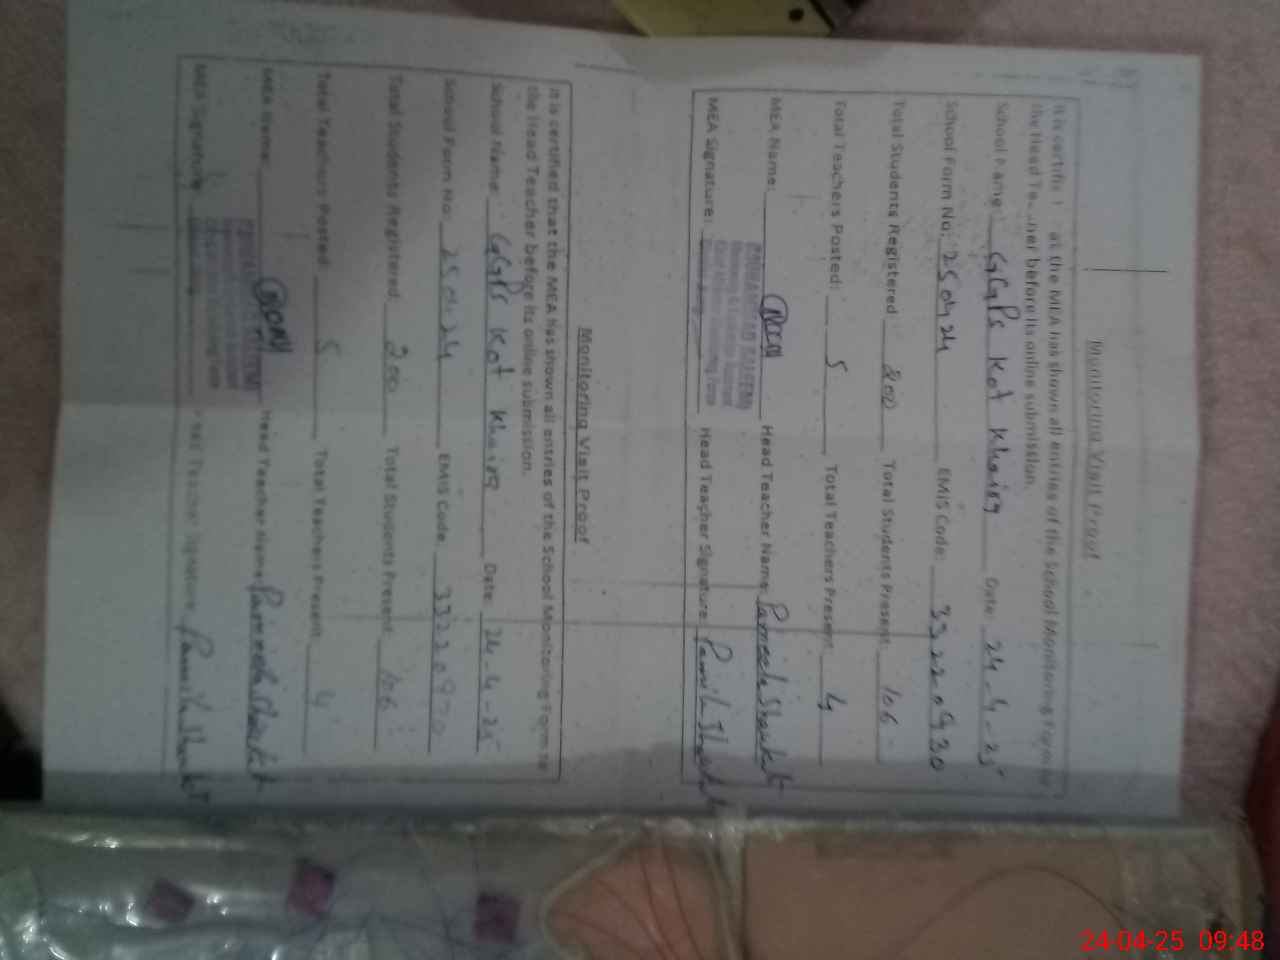 Monitoring Visit Proof
It is certifi at the MEA has shown all entries of the School Monitoring Form to
the Head Teacher before its online submission.
School Name: GGPS Kot Khaira Date: 24-4-25
School Form No: 250424 EMIS Code: 33220930
Total Students Registered 200 Total Students Present: 106
Total Teachers Posted: 5 Total Teachers Present: 4
MEA Name: Head Teacher Name: Shaukat
MEA Signature: Head Teacher Signature:
Monitoring Visit Proof
It is certified that the MEA has shown all entries of the School Monitoring Form to
the Head Teacher before its online submission.
School Name: GGPS Kot Khaira Date: 24-4-25
School Form No: 250424 EMIS Code: 33220930
Total Students Registered: 200 Total Students Present: 106
Total Teachers Posted: 5 Total Teachers Present: 4
MEA Name: Head Teacher Name: Shaukat
MEA Signature: Head Teacher Signature:
24-04-25 09:48